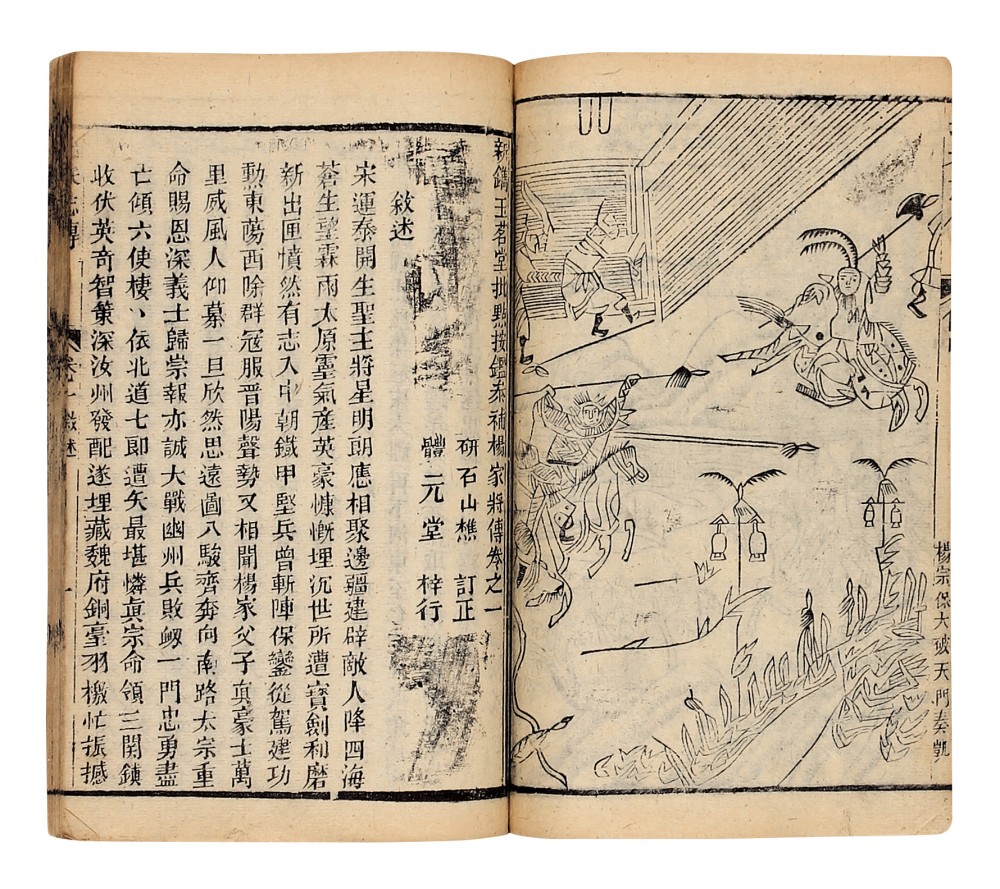 楊宗保大破天門奏凱
新鐫玉茗堂批點按鑑參補楊家將傳卷之一
研石山樵 訂正
體元堂 梓行
敘述
宋運泰開生聖主將星明朗應相聚邊疆建辟敵人降四海
蒼生望霖雨太原靈氣產英豪慷慨埋沉世所遭寶劍利磨
新出匣憤然有志入中朝鐵甲堅兵曾斬陣保鑾從駕建功
勲東蕩西除群冠服晋陽聲勢又相聞楊家父子真豪士萬
里威風人仰慕一旦欣然思遠圖八駿齊奔向南路太宗重
命賜恩深義士歸崇報亦誠大戰幽州兵敗衂一門忠勇盡
亡傾六使棲丶依北道七郎遭矢最堪憐真宗命領三関鎮
收伏英奇智策深汝州發配遂埋藏魏府銅臺羽檄忙振撼
志傳 卷一 敘述 一